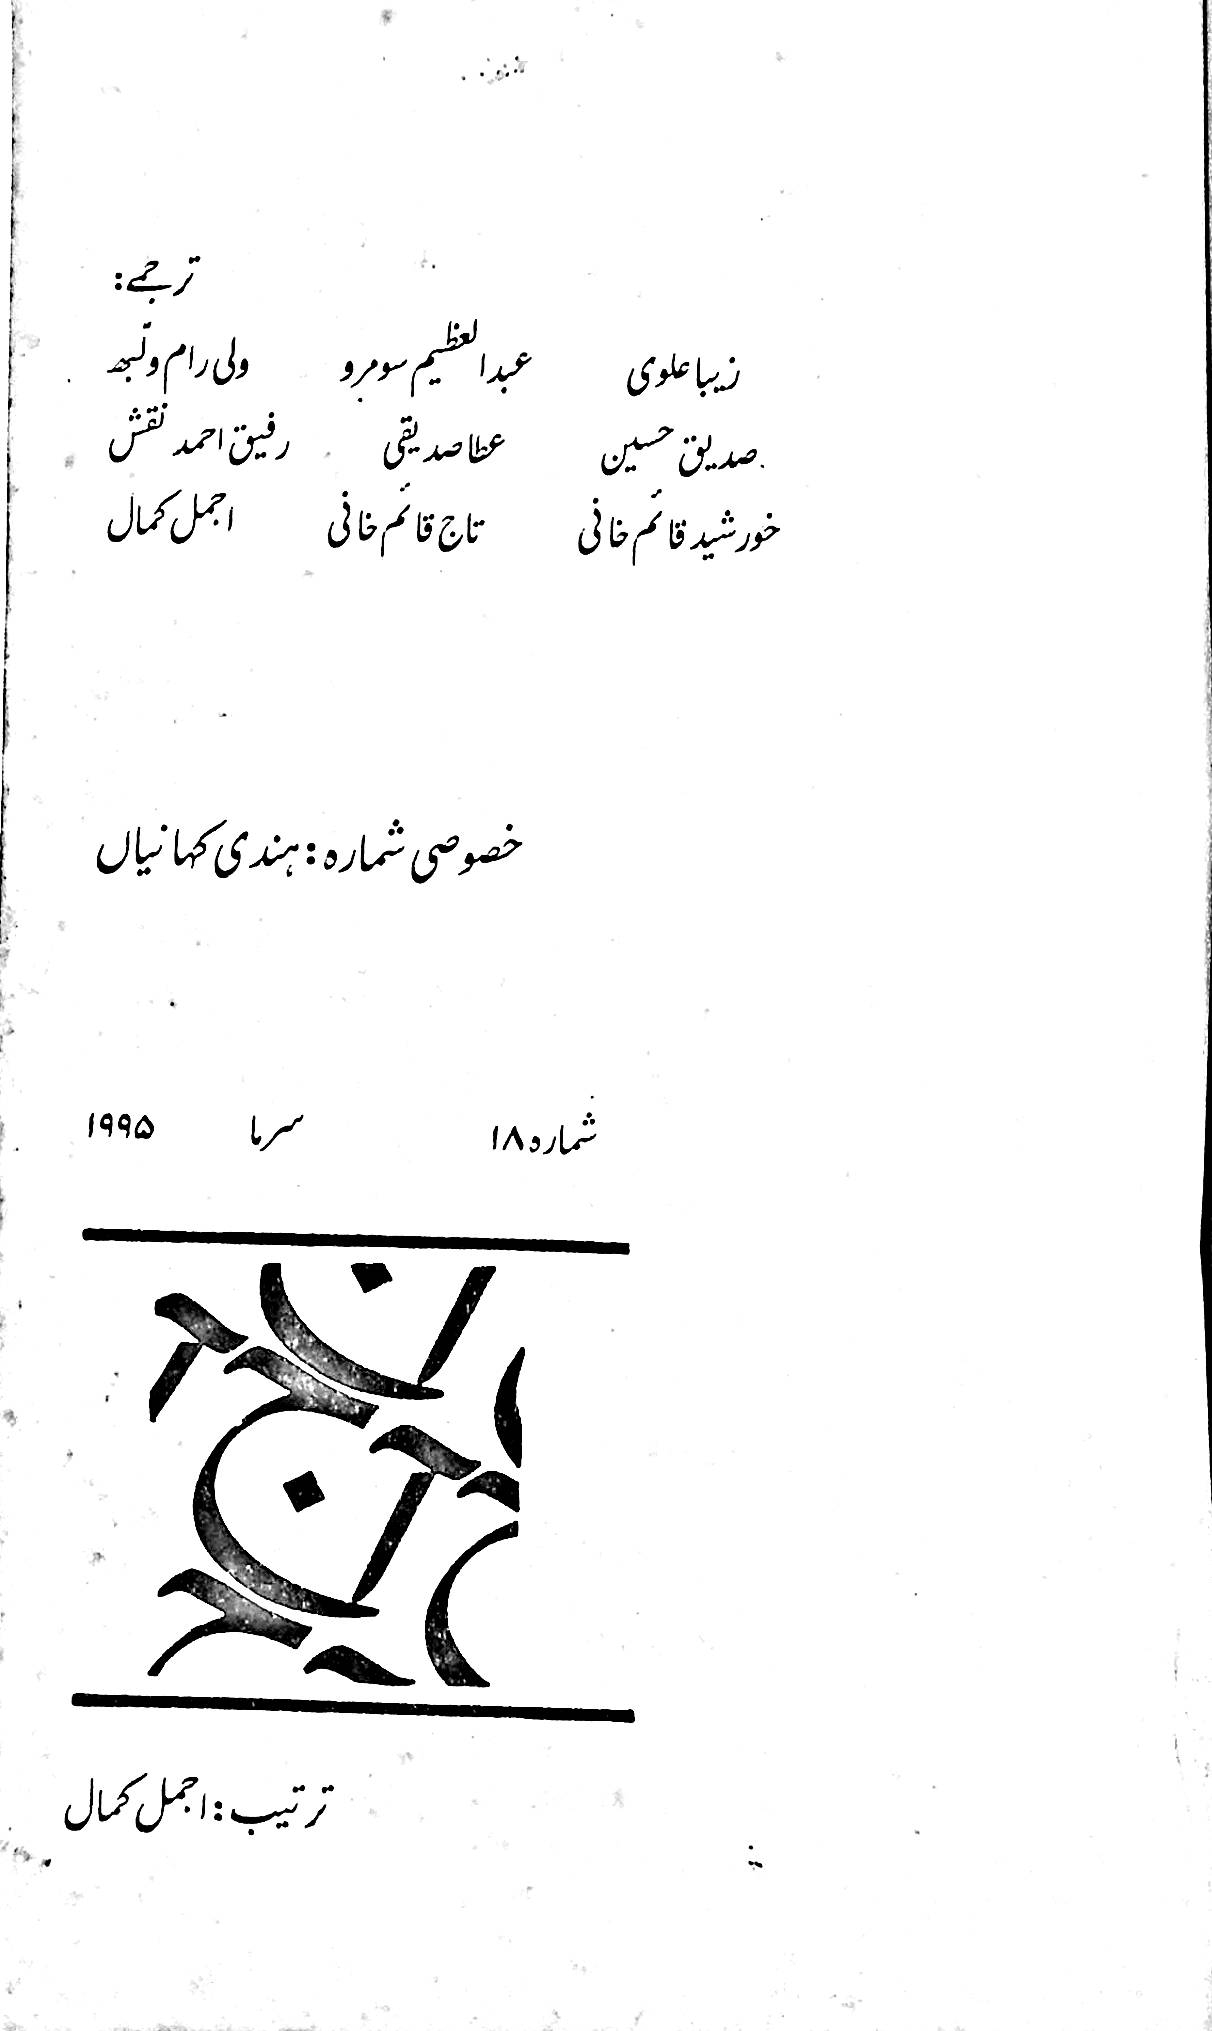 ترجمے:
زیبا علوی عبدالعظیم سومرو ولی رام ولّبھ
صدیق حسین عطا صدیقی رفیق احمد نقش
خورشید قائم خانی تاج قائم خانی اجمل کمال
خصوصی شمارہ: ہندی کہانیاں
شمارہ ۱۸ سرما ۱۹۹۵
آج
ترتیب: اجمل کمال